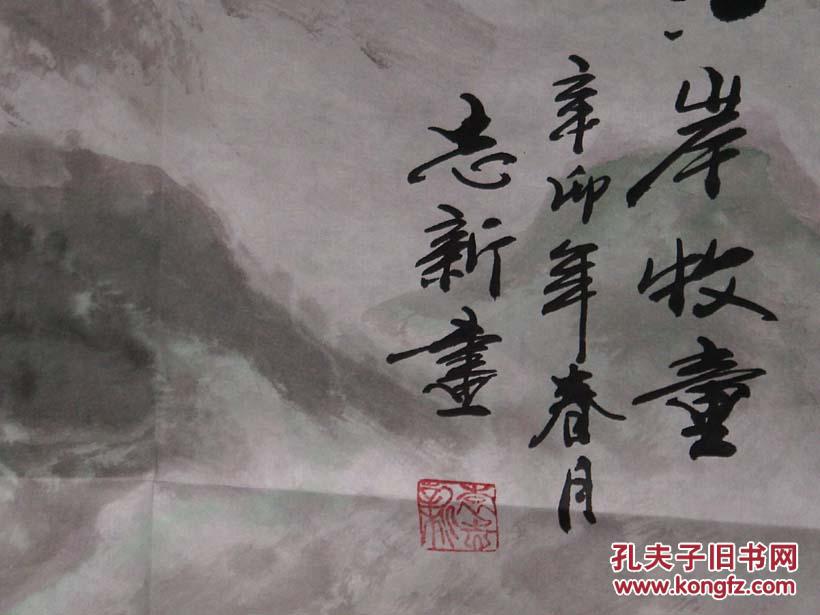 岸牧童
辛卯年春月
志新画
孔夫子旧书网
www.kongfz.com